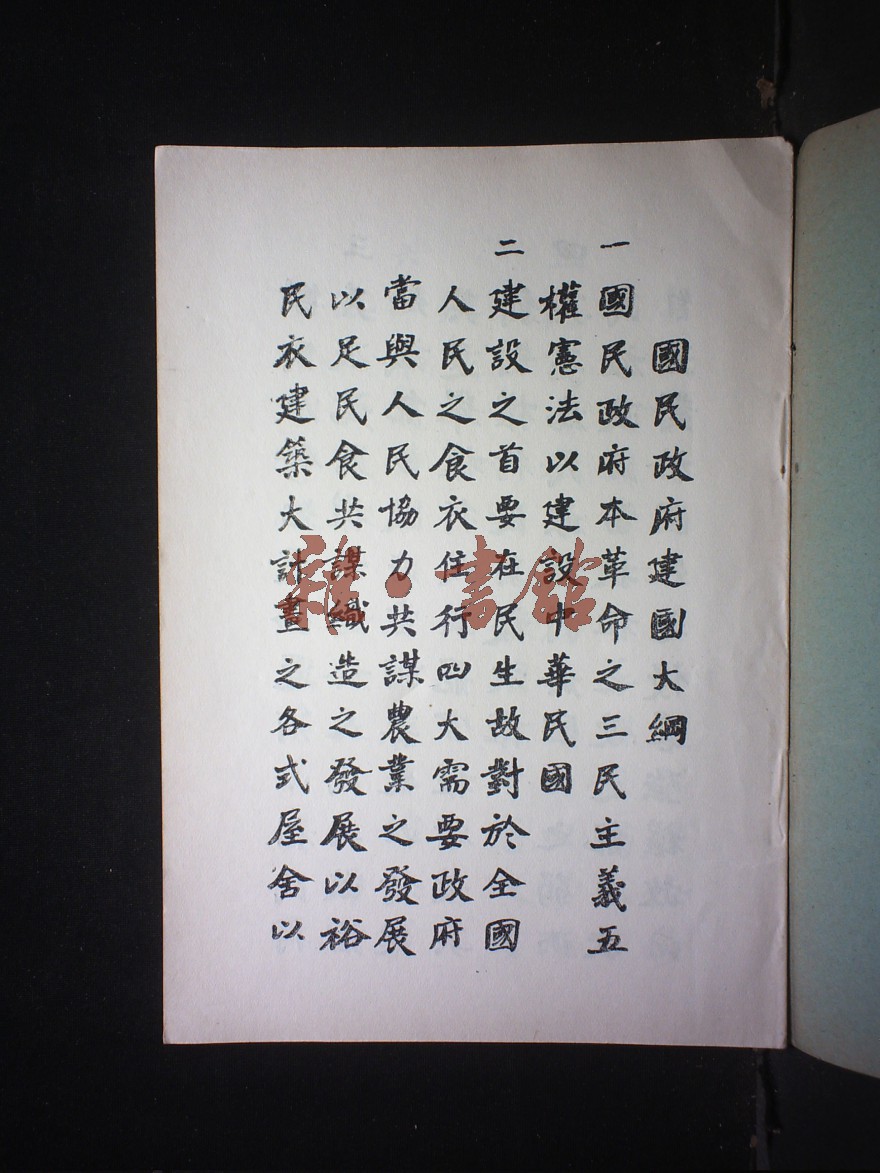 國民政府建國大綱
一國民政府本革命之三民主義五
權憲法以建設中華民國
二建設之首要在民生故對於全國
人民之食衣住行四大需要政府
當與人民協力共謀農業之發展
以足民食共謀織造之發展以裕
民衣建築大計畫之各式屋舍以
雜·書館